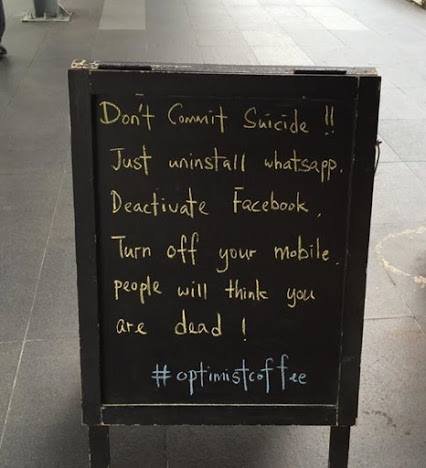 Don't Commit Suicide !!
Just uninstall whatsapp.
Deactivate Facebook,
Turn off your mobile.
people will think you
are dead !
#optimistcoffee